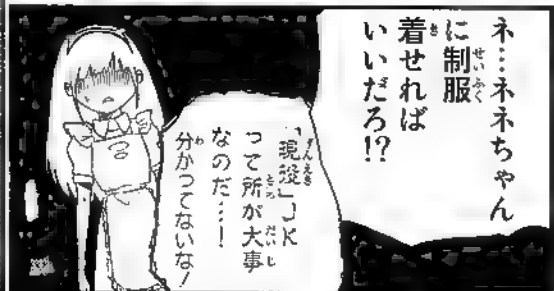 ネ…ネネちゃん
に制服
着せれば
いいだろ!?
「現役」JK
って所が大事
なのだ…!
分かってないな!